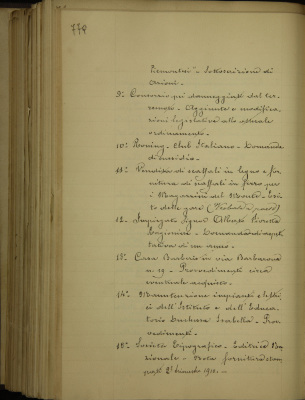 779
Piemontesi" - Sottoscrizione di
azioni. -
9° Consorzio pei danneggiati dal ter-
remoto - Aggiunte e modifica-
zioni legislative alle attuale
ordinamento. -
10° Rowing-Club Italiano - Domanda
di sussidio. -
11° Vendita di scaffali in legno e for-
nitura di scaffali in ferro per
i Magazzini del Monte - Esi-
to delle gare
12° Impiegato Signor Alberto
Ragioniere - Domanda di aspet-
tativa di un anno. -
13° Casa Barberis in via Barbaroux
n. 19 - Provvedimenti circa
eventuale acquisto. -
14° Manutenzione impianti elettri-
ci dell'Istituto e dell'Educa-
torio Duchessa Isabella - Prov-
vedimenti. -
15° Società Tipografico - Editrice Na-
zionale - Nota fornitura stam-
pati 2° bimestre 1910. -